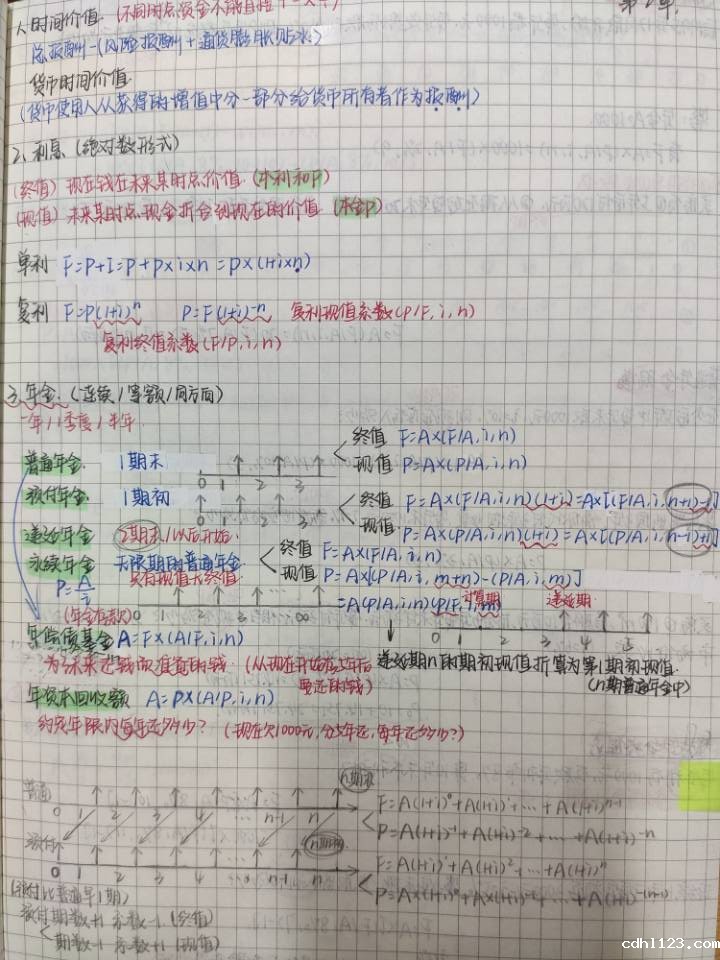 1、时间价值 (不同时点资金不能直接+-×÷)
第2章
总报酬-(风险报酬+通货膨胀贴水)
货币时间价值
(货币使用人从获得的增值中分一部分给货币所有者作为报酬)
2、利息 (绝对数形式)
(终值) 现在钱在未来某时点价值 (本利和F)
(现值) 未来某时点现金折合到现在的价值 (本金P)
单利 F=P+I=P+P×i×n=P×(1+i×n)
复利 F=P(1+i)^n P=F(1+i)^-n 复利现值系数(P/F,i,n)
复利终值系数(F/P,i,n)
3、年金 (连续/等额/同方向)
一年/1季度/半年
普通年金 1期末 0 1 2 3 终值 F=A×(F/A,i,n)
现值 P=A×(P/A,i,n)
预付年金 1期初 0 1 2 3 终值 F=A×(F/A,i,n)(1+i)=A×[(F/A,i,n+1)-1]
现值 P=A×(P/A,i,n)(1+i)=A×[(P/A,i,n-1)+1]
递延年金 2期末/以后开始 终值 F=A×(F/A,i,n)
现值 P=A×[(P/A,i,m+n)-(P/A,i,m)]
=A(P/A,i,n)(P/F,i,m)
永续年金 无限期的普通年金
只有现值无终值
P=A/i
0 1 2 3 ∞
递延期
0 1 2 3 4 5
年偿债基金 A=F×(A/F,i,n)
为了未来还钱而准备的钱 (从现在开始存
递延期n的期初现值折算为第1期初现值
(n期普通年金中)
年资本回收额 A=P×(A/P,i,n)
约定年限内每年还多少? (现在欠1000元,分5年还,每年还多少?)
普通 0 1 2 3 4 … n-1 n n期末
F=A(1+i)^0+A(1+i)^1+…+A(1+i)^n-1
P=A(1+i)^-1+A(1+i)^-2+…+A(1+i)^-n
预付 0 1 2 3 4 … n-1 n
F=A(1+i)^1+A(1+i)^2+…+A(1+i)^n
P=A×(1+i)^0+A×(1+i)^-1+…+A(1+i)^-(n-1)
(预付比普通早1期)
预付期数+1 系数-1 (终值)
期数-1 系数+1 (现值)
cdhl123.com